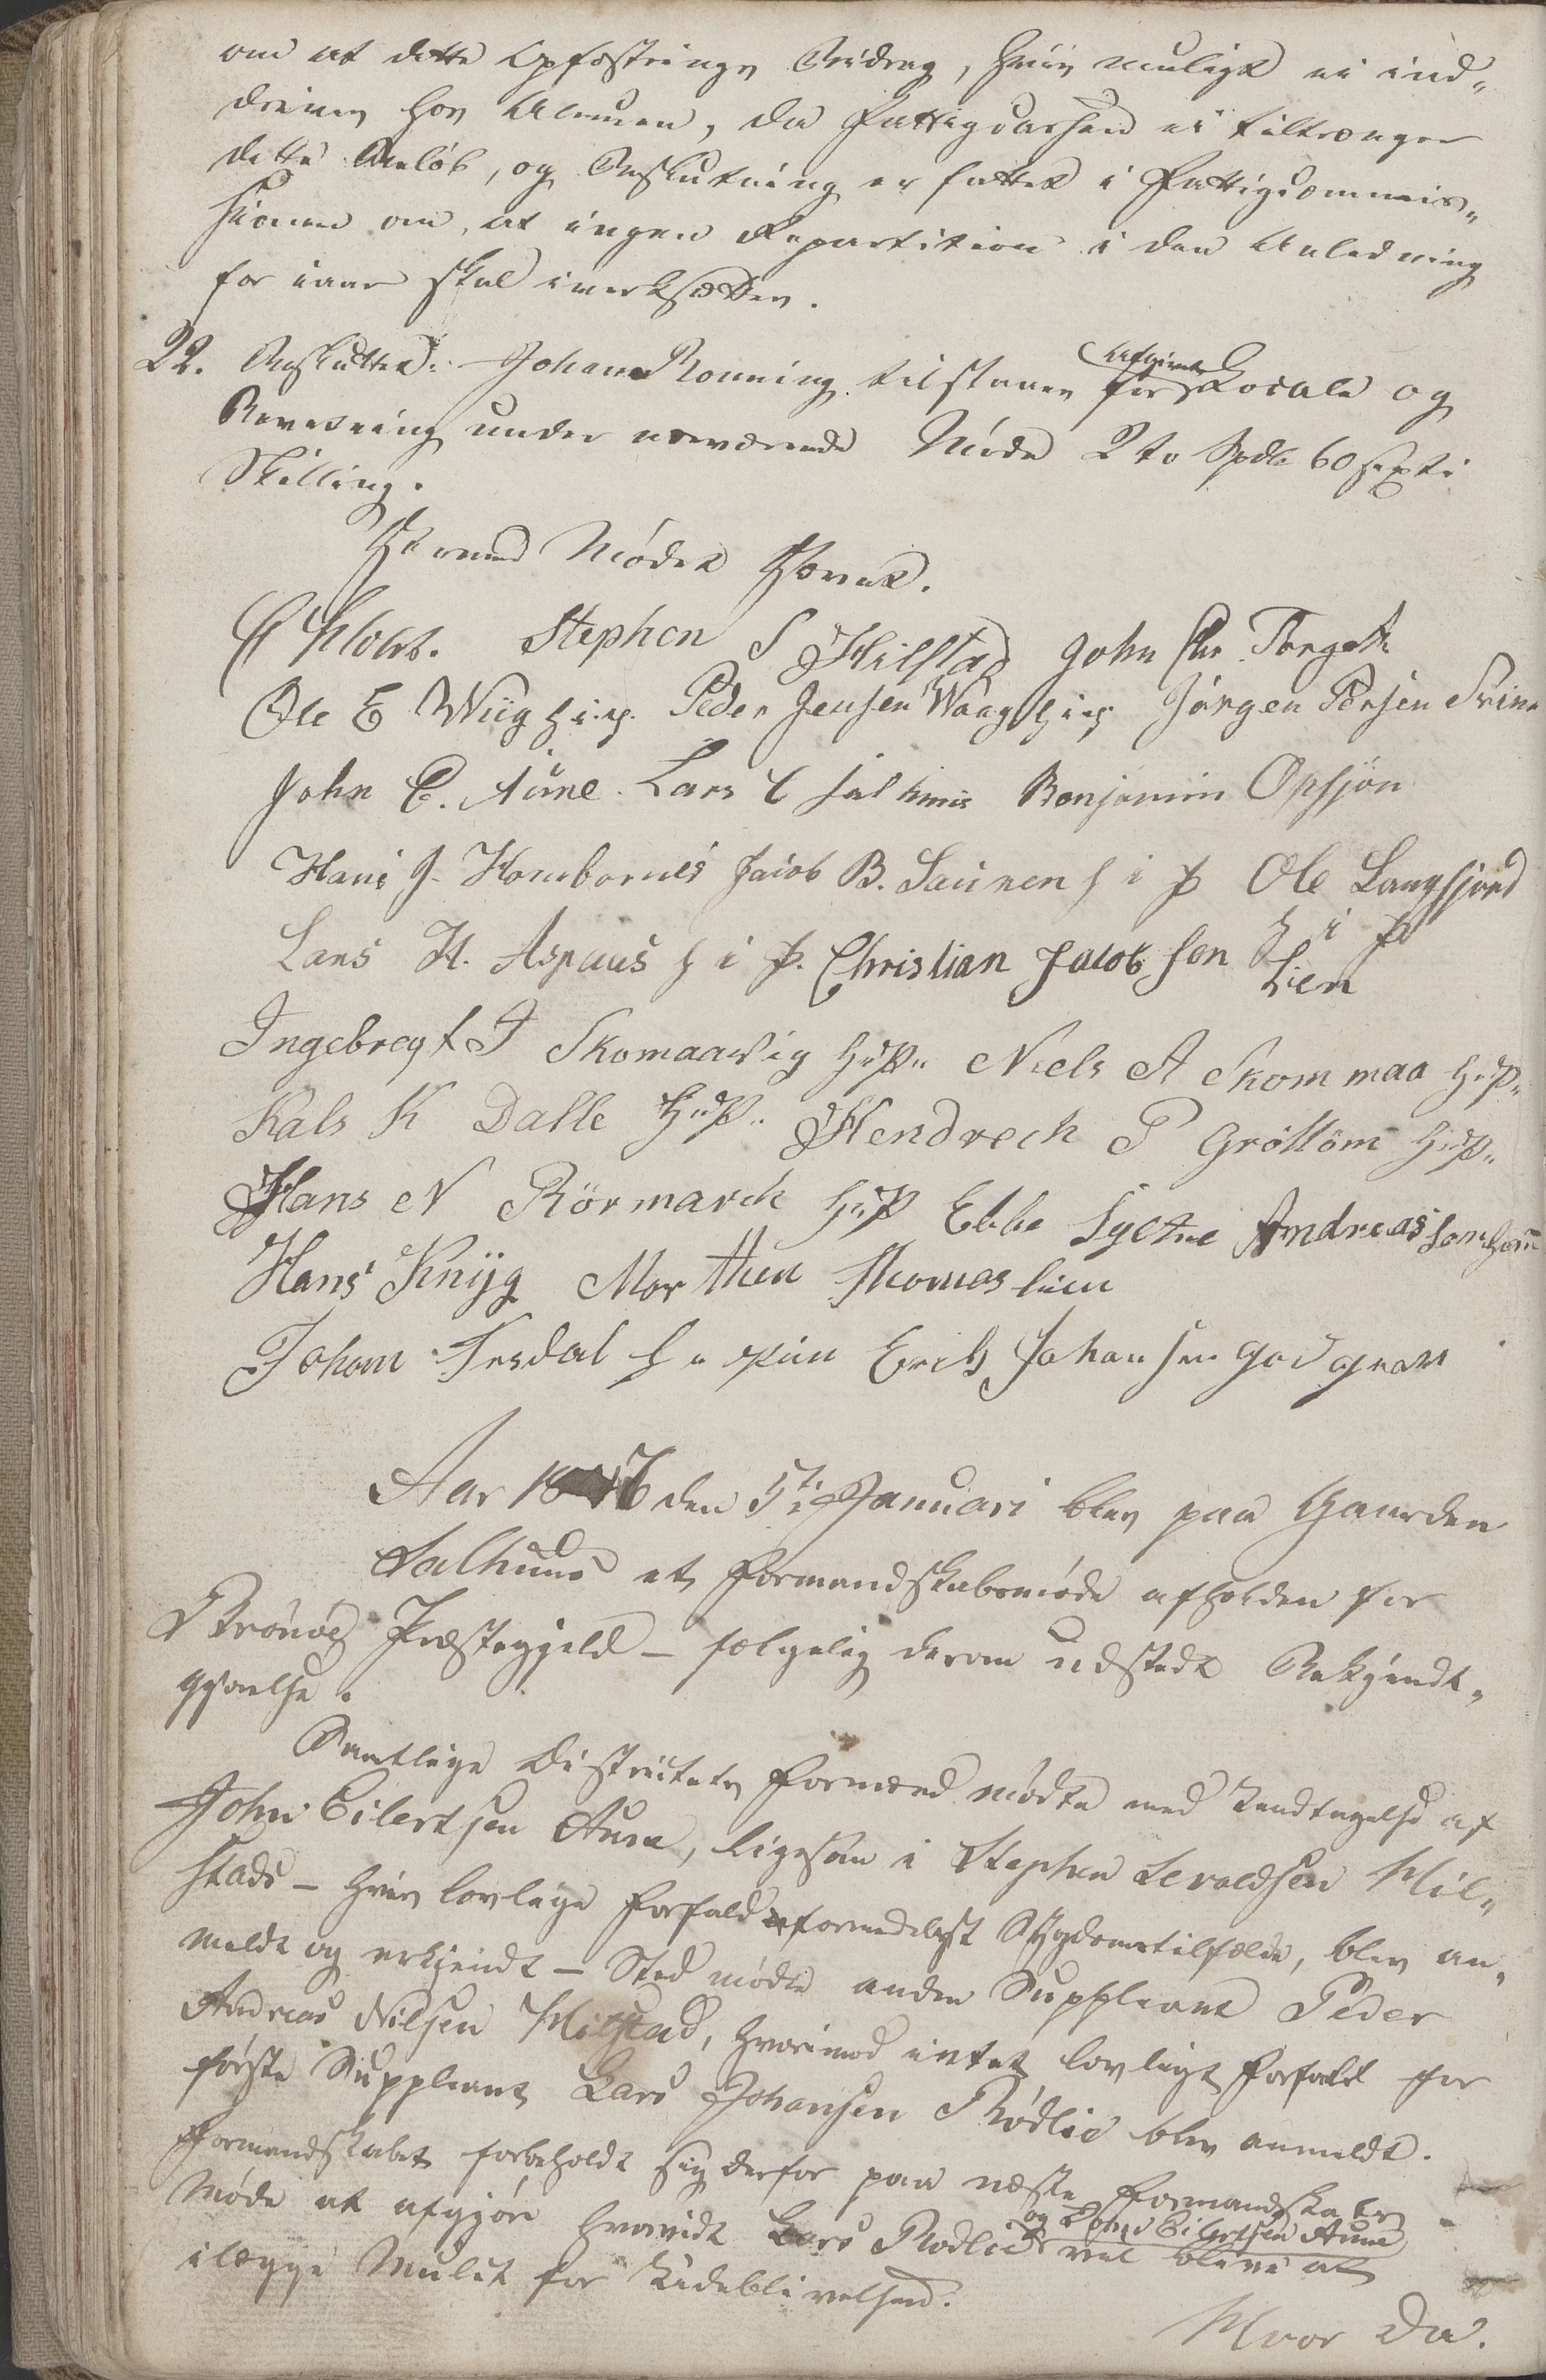 om at dette Opfostrings Bidrag, hvis muligt ei ind„
drives hos Almuen, da Fattigcassen ei tiltrænger
dette Beløb, og Beslutning er fattet i Fattigcommis„
sionen om, at ingen Repartition i den Anledning
for iaar skal iverksættes.
22. Besluttet: Johan Ronning tilstaaes for Locale og
Bevertning under nærværende Møde 2 to Spdlr 60 sexti
Skilling.
Hermed Mødet Hævet.
Stephen S Hilstad John Chr. Torget
Ole E Wiig h. i. p. Peder Jensen Waag h i p Jørgen Persen
John E. Aune Lars C Benjamin Opsjøn
Hans J. Hombornes Jacob B. Saursen h i p Ole Langfjord
h i p
Lars H. Aspaas h i p. Christian Jacobsen Lien
Ingebregt I Skomaavig h i P„ Niels A Skommaa h i P„
Kals K Dalle h i P„ Hendrech P Grøttöm h i P„
Hans N Rörmarck h i P Ebbe Andreassen
Hans Knÿg Morthen Thomas
Johan h Erich Johansen
Aar 1846 den 5te Januari blev paa Gaarden
Salhuus et Formandskabsmøde afholden for
Brønøe Præstegjeld – følgelig derom udstedt Bekjendt„
gjørelse.
Samtlige Districtets Formænd mødte med Undtagelse af
John Eilertsen Aune, ligesom i Stephen Sevaldsen Hil„
stads – hvis lovlige Forfald formedelst Sygdomstilfælde, blev an„
meldt og erkjendt – Sted mødte anden Suppleant Peder
Andreas Nilsen Hilstad, hvorimod intet lovligt Forfald for
første Suppleant Lars Johansen Rødlie blev anmeldt.
Formandskabet forbeholdt sig derfor paa næste Formandskabs
Møde at afgjøre hvorvidt Lars Rodlie og John Eilertsen Aune vil blive at
ilægge Mulct for Udeblivelsen.
Hvor da.